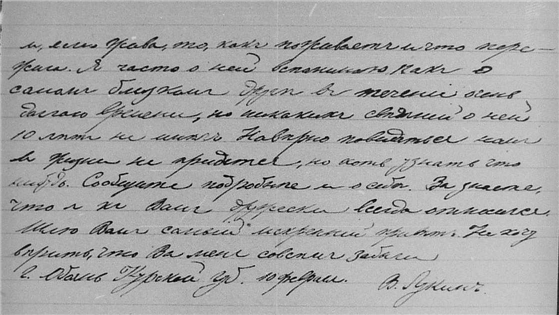 и, если жива, то, какъ поживаетъ и что пере-
жила. Я часто о ней вспоминаю какъ о
самомъ близкомъ другѣ въ теченіи очень
долгаго времени, но никакихъ свѣдѣній о ней
10 лѣтъ не имѣю. Навѣрно повидаться намъ
въ жизни не придется, но хоть узнать что
нибудь. Сообщите подробнѣе и о себѣ. Вы знаете,
что я къ Вамъ дружески всегда относился,
Шлю Вамъ самый искренній привѣтъ. Не хочу
вѣрить, что Вы меня совсѣмъ забыли
Г. Обоянь Курской губ. 10 февраля. В. Лукинъ.